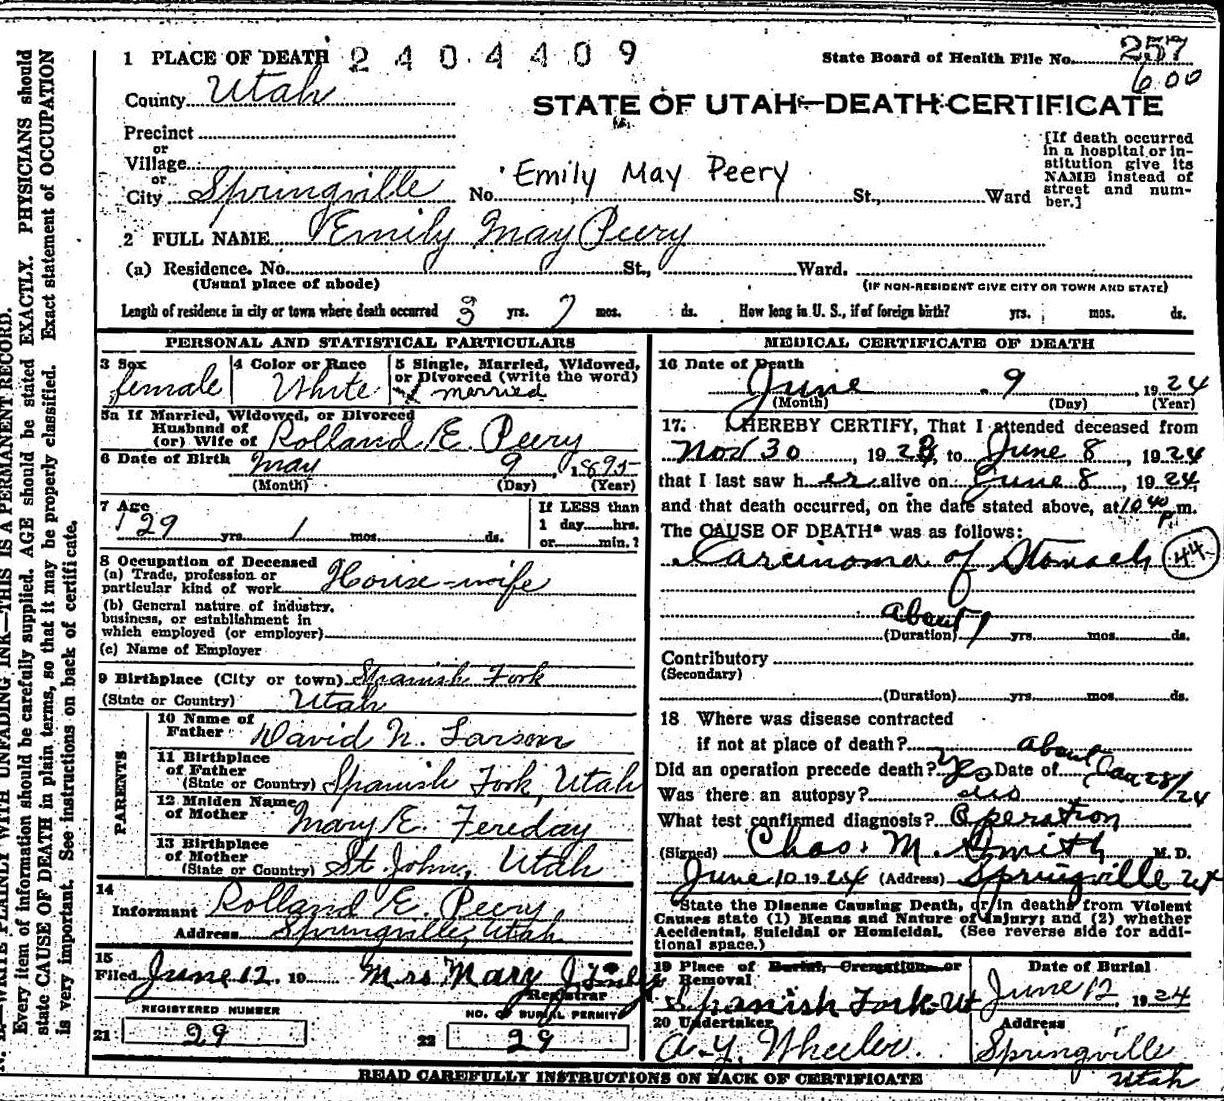 1 PLACE OF DEATH 2404409 State Board of Health File No. 257
County Utah 600
STATE OF UTAH—DEATH CERTIFICATE
Precinct
or
Village
or
City Springville No. Emily May Peery St., Ward
[If death occurred in a hospital or institution give its NAME instead of street and number.]
2 FULL NAME Emily May Peery
(a) Residence. No. St., Ward.
(Usual place of abode) (IF NON-RESIDENT GIVE CITY OR TOWN AND STATE)
Length of residence in city or town where death occurred yrs. 7 mos. ds. How long in U. S., if of foreign birth? yrs. mos. ds.
PERSONAL AND STATISTICAL PARTICULARS
3 Sex female
4 Color or Race White
5 Single, Married, Widowed, or Divorced (write the word) married
5a If Married, Widowed, or Divorced
Husband of
(or) Wife of Rolland E. Peery
6 Date of Birth May 9 1895
(Month) (Day) (Year)
7 Age 29 yrs. 1 mos. ds.
If LESS than
1 day hrs.
or min.?
8 Occupation of Deceased
(a) Trade, profession or
particular kind of work House-wife
(b) General nature of industry,
business, or establishment in
which employed (or employer)
(c) Name of Employer
9 Birthplace (City or town) Spanish Fork
(State or Country) Utah
PARENTS
10 Name of
Father David N. Larson
11 Birthplace
of Father
(State or Country) Spanish Fork, Utah
12 Maiden Name
of Mother Mary E. Fereday
13 Birthplace
of Mother
(State or Country) St. John, Utah
14
Informant Rolland E. Peery
Address Springville, Utah
15
Filed June 12 19 Mrs Mary J.
Registrar
REGISTERED NUMBER
21 29
NO. OF BURIAL PERMIT
22 29
MEDICAL CERTIFICATE OF DEATH
16 Date of Death
June 9 1924
(Month) (Day) (Year)
17. I HEREBY CERTIFY, That I attended deceased from
Nov 30, 1923, to June 8, 1924
that I last saw her alive on June 8, 1924,
and that death occurred, on the date stated above, at 10 40 p.m.
The CAUSE OF DEATH* was as follows:
Carcinoma of Stomach 44
about 1
(Duration) yrs. mos. ds.
Contributory
(Secondary)
(Duration) yrs. mos. ds.
18 Where was disease contracted
if not at place of death?
Did an operation precede death? Yes Date of about Jan 28/24
Was there an autopsy?
What test confirmed diagnosis? Operation
(Signed) Chas. M. Smith M. D.
June 10 1924 (Address) Springville Ut
State the Disease Causing Death, or in deaths from Violent
Causes state (1) Means and Nature of Injury; and (2) whether
Accidental, Suicidal or Homicidal. (See reverse side for additional space.)
19 Place of Burial, Cremation, or
Removal
Spanish Fork Ut
Date of Burial
June 12 1924
20 Undertaker
A. Y. Wheeler
Address
Springville
Utah
READ CAREFULLY INSTRUCTIONS ON BACK OF CERTIFICATE
WRITE PLAINLY WITH UNFADING INK—THIS IS A PERMANENT RECORD.
Every item of information should be carefully supplied. AGE should be stated EXACTLY. PHYSICIANS should
state CAUSE OF DEATH in plain terms, so that it may be properly classified. Exact statement of OCCUPATION
is very important. See instructions on back of certificate.